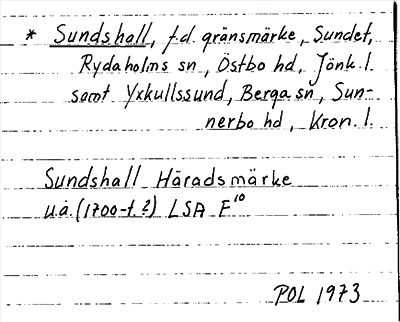 * Sundshall, f.d. gränsmärke, Sundet,
Rydaholms sn, Östbo hd, Jönk. l.
samt Yxkullssund, Berga sn, Sun-
nerbo hd, Kron. l.
Sundshall Häradsmärke
u.å. (1700-t. ?) LSA F¹⁰
POL 1973